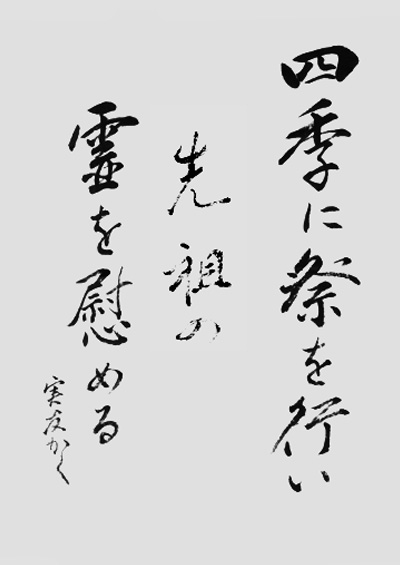 四季に祭を行い
先祖の
霊を慰める
実友かく